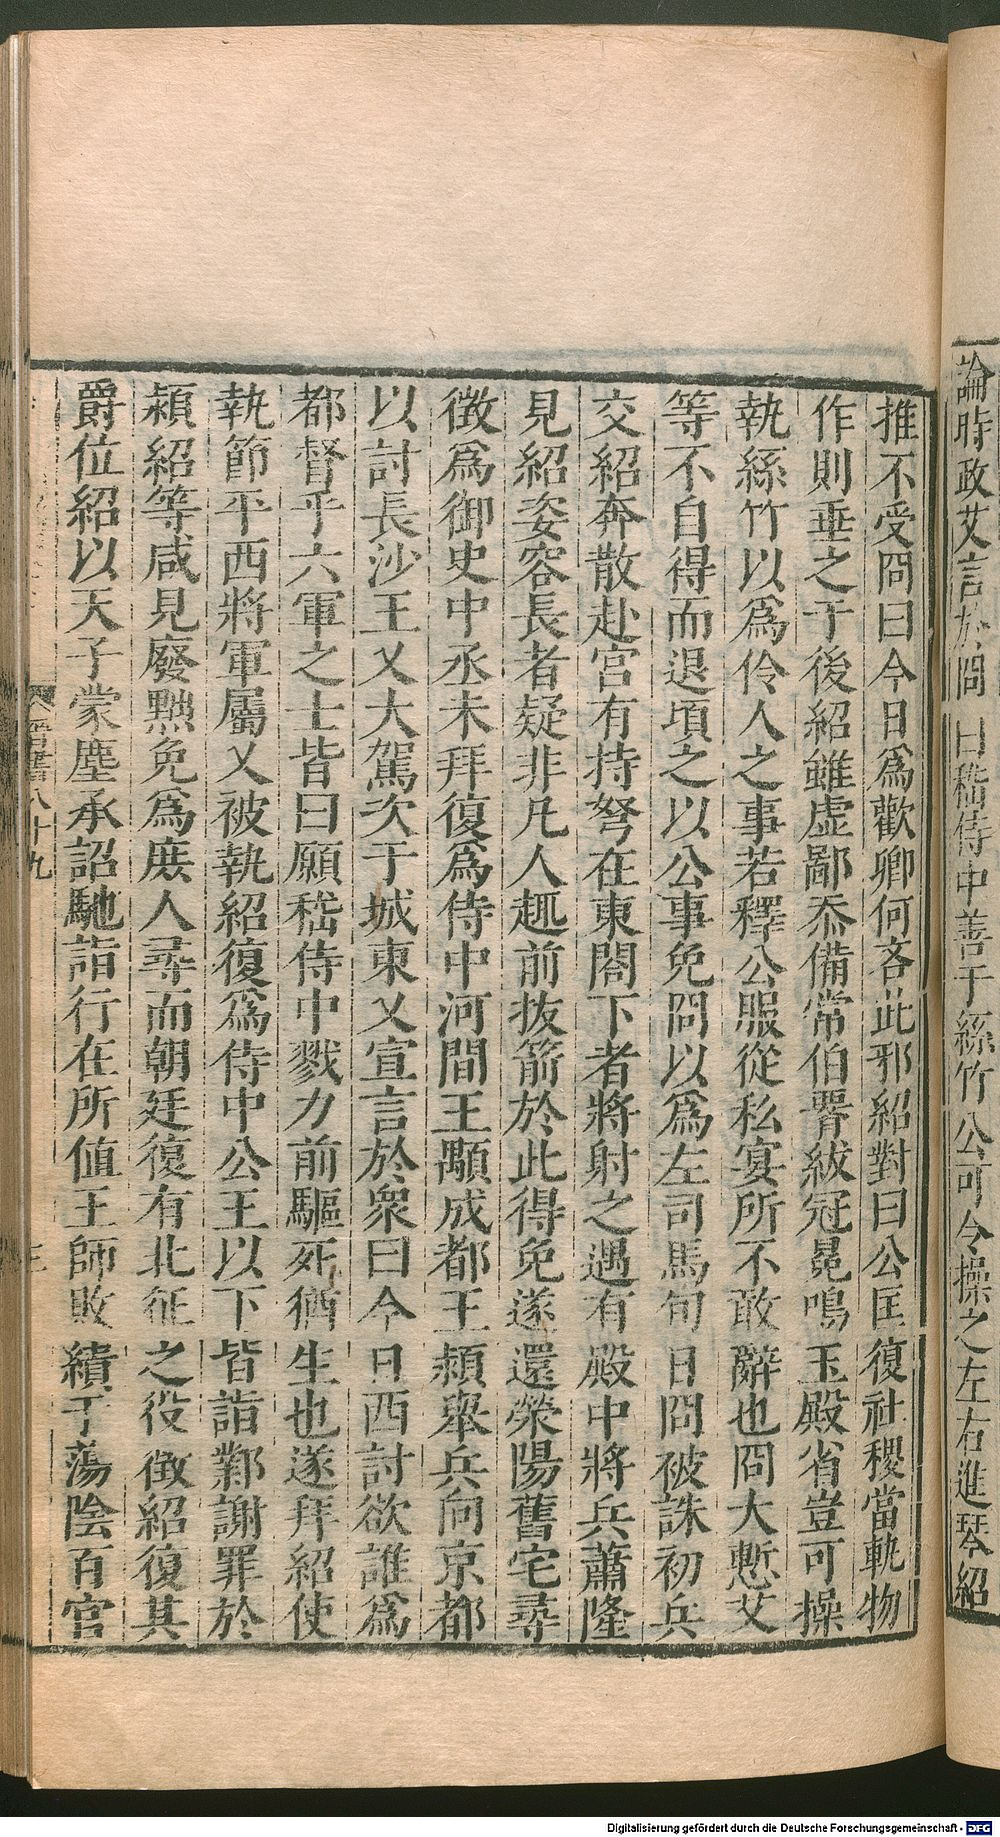 論時政艾言於冏曰嵇侍中善于絲竹公可令操之左右進琴紹
推不受冏曰今日爲歡卿何吝此邪紹對曰公匡復社稷當軌物
作則垂之于後紹雖虛鄙忝備常伯腎紱冠冕鳴玉殿省豈可操
執絲竹以爲伶人之事若釋公服從私宴所不敢辭也冏大慙艾
等不自得而退頃之以公事免冏以爲左司馬旬日冏被誅初兵
交紹奔散赴宮有持弩在東閣下者將射之遇有殿中將兵蕭隆
見紹姿容長者疑非凡人趣前拔箭於此得免遂還滎陽舊宅尋
徵爲御史中丞未拜復爲侍中河間王顒成都王穎舉兵向京都
以討長沙王乂大駕次于城東乂宣言於衆曰今日西討欲誰爲
都督乎六軍之士皆曰願嵇侍中戮力前驅死猶生也遂拜紹使
執節平西將軍屬乂被執紹復爲侍中公王以下皆詣鄴謝罪於
穎紹等咸見廢黜免爲庶人尋而朝廷復有北征之役徵紹復其
爵位紹以天子蒙塵承詔馳詣行在所値王師敗績于蕩陰百官
晉書八十九 三
Digitalisierung gefördert durch die Deutsche Forschungsgemeinschaft - DFG